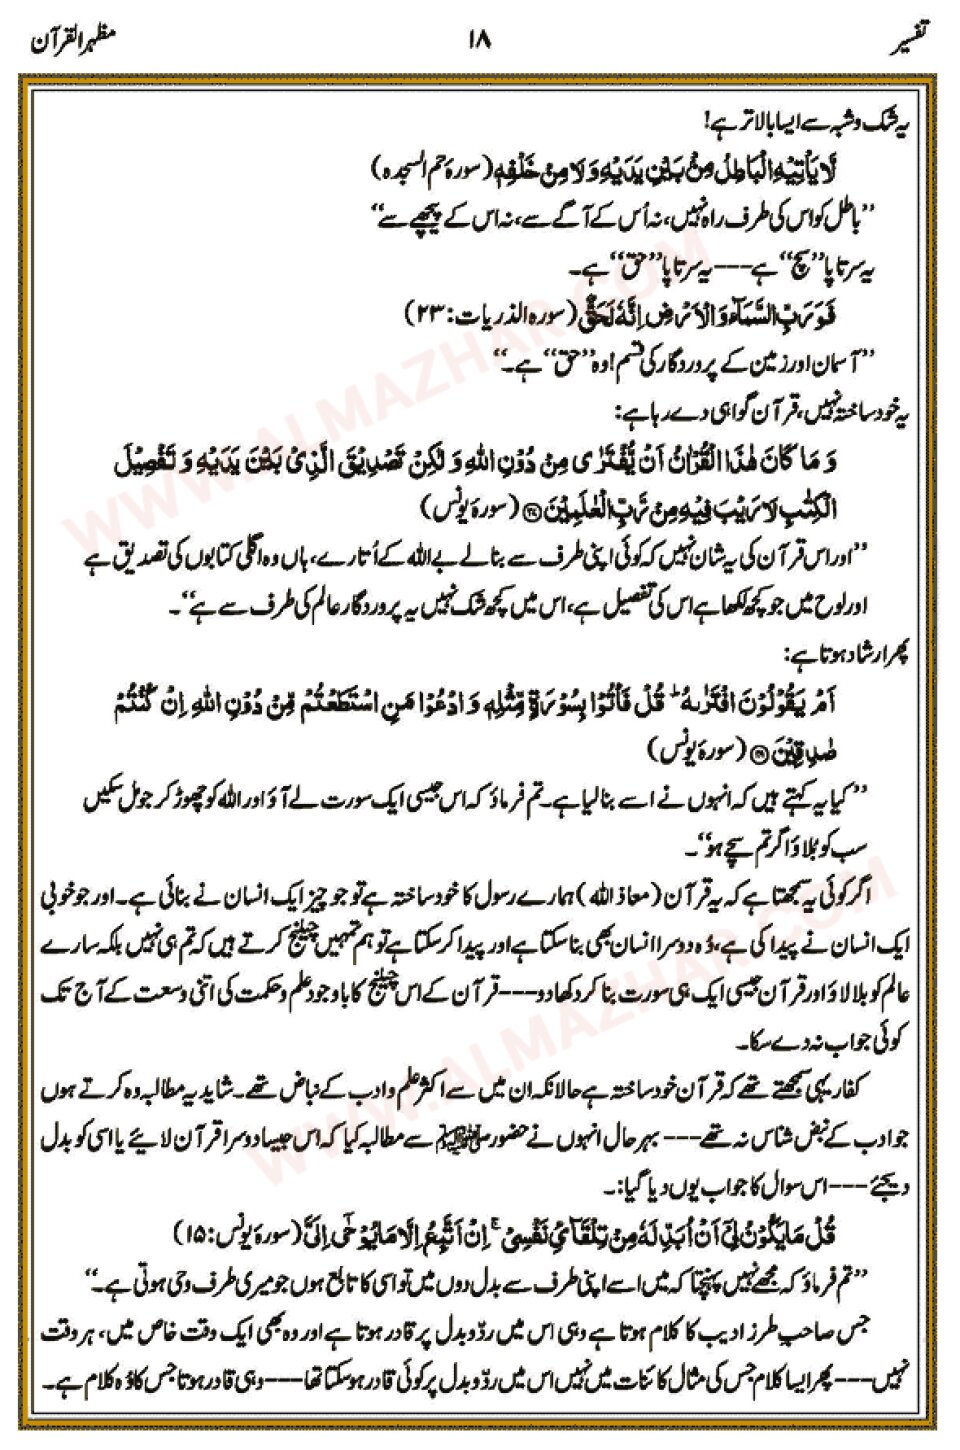 تفسیر ۱۸ مظہر القرآن
یہ شک و شبہ سے ایسا بالاتر ہے!
لَّا یَاْتِیْہِ الْبَاطِلُ مِنْۢ بَیْنِ یَدَیْہِ وَلَا مِنْ خَلْفِہٖ (سورۂ حٰم السجدہ)
’’باطل کو اس کی طرف راہ نہیں، نہ اُس کے آگے سے، نہ اس کے پیچھے سے‘‘
یہ سرتاپا ’’سچ‘‘ ہے---یہ سرتاپا ’’حق‘‘ ہے۔
فَوَرَبِّ السَّمَآءِ وَالْاَرْضِ اِنَّہٗ لَحَقٌّ (سورہ الذریات: ۲۳)
’’آسمان اور زمین کے پروردگار کی قسم! وہ ’’حق‘‘ ہے۔‘‘
یہ خود ساختہ نہیں، قرآن گواہی دے رہا ہے:
وَ مَا کَانَ ہٰذَا الْقُرْاٰنُ اَنْ یُّفْتَرٰی مِنْ دُوْنِ اللّٰہِ وَ لٰکِنْ تَصْدِیْقَ الَّذِیْ بَیْنَ یَدَیْہِ وَ تَفْصِیْلَ
الْکِتٰبِ لَا رَیْبَ فِیْہِ مِنْ رَّبِّ الْعٰلَمِیْنَ ﴿۳۷﴾ (سورۂ یونس)
’’اور اس قرآن کی یہ شان نہیں کہ کوئی اپنی طرف سے بنا لے بے اللہ کے اُتارے، ہاں وہ اگلی کتابوں کی تصدیق ہے
اور لوح میں جو کچھ لکھا ہے اس کی تفصیل ہے، اس میں کچھ شک نہیں یہ پروردگار عالم کی طرف سے ہے‘‘۔
پھر ارشاد ہوتا ہے:
اَمْ یَقُوْلُوْنَ افْتَرٰىہُ ؕ قُلْ فَاْتُوْا بِسُوْرَۃٍ مِّثْلِہٖ وَ ادْعُوْا مَنِ اسْتَطَعْتُمْ مِّنْ دُوْنِ اللّٰہِ اِنْ کُنْتُمْ
صٰدِقِیْنَ ﴿۳۸﴾ (سورۂ یونس)
’’کیا یہ کہتے ہیں کہ انہوں نے اسے بنا لیا ہے۔ تم فرماؤ کہ اس جیسی ایک سورت لے آؤ اور اللہ کو چھوڑ کر جو مل سکیں
سب کو بُلاؤ اگر تم سچے ہو‘‘۔
اگر کوئی یہ سمجھتا ہے کہ یہ قرآن (معاذ اللہ) ہمارے رسول کا خود ساختہ ہے تو جو چیز ایک انسان نے بنائی ہے۔ اور جو خوبی
ایک انسان نے پیدا کی ہے، وُہ دوسرا انسان بھی بنا سکتا ہے اور پیدا کر سکتا ہے تو ہم تمہیں چیلنج کرتے ہیں کہ تم ہی نہیں بلکہ سارے
عالم کو بلا لاؤ اور قرآن جیسی ایک ہی سورت بنا کر دکھا دو---قرآن کے اس چیلنج کا باوجود علم و حکمت کی اتنی وسعت کے آج تک
کوئی جواب نہ دے سکا۔
کفار یہی سمجھتے تھے کہ قرآن خود ساختہ ہے حالانکہ ان میں سے اکثر علم و ادب کے نباض تھے۔ شاید یہ مطالبہ وہ کرتے ہوں
جو ادب کے نبض شناس نہ تھے---بہر حال انہوں نے حضور ﷺ سے مطالبہ کیا کہ اس جیسا دوسرا قرآن لائیے یا اسی کو بدل
دیجئے---اس سوال کا جواب یوں دیا گیا:۔
قُلْ مَا یَکُوْنُ لِیْٓ اَنْ اُبَدِّلَہٗ مِنْ تِلْقَآئِ نَفْسِیْ ۚ اِنْ اَتَّبِعُ اِلَّا مَا یُوْحٰٓی اِلَیَّ (سورۂ یونس: ۱۵)
’’تم فرماؤ کہ مجھے نہیں پہنچتا کہ میں اسے اپنی طرف سے بدل دوں میں تو اسی کا تابع ہوں جو میری طرف وحی ہوتی ہے۔‘‘
جس صاحبِ طرز ادیب کا کلام ہوتا ہے وہی اس میں ردّ و بدل پر قادر ہوتا ہے اور وہ بھی ایک وقت خاص میں، ہر وقت
نہیں---پھر ایسا کلام جس کی مثال کائنات میں نہیں اس میں ردّ و بدل پر کوئی قادر ہو سکتا تھا---وہی قادر ہوتا جس کا وُہ کلام ہے۔
WWW.ALMAZHAR.COM
WWW.ALMAZHAR.COM